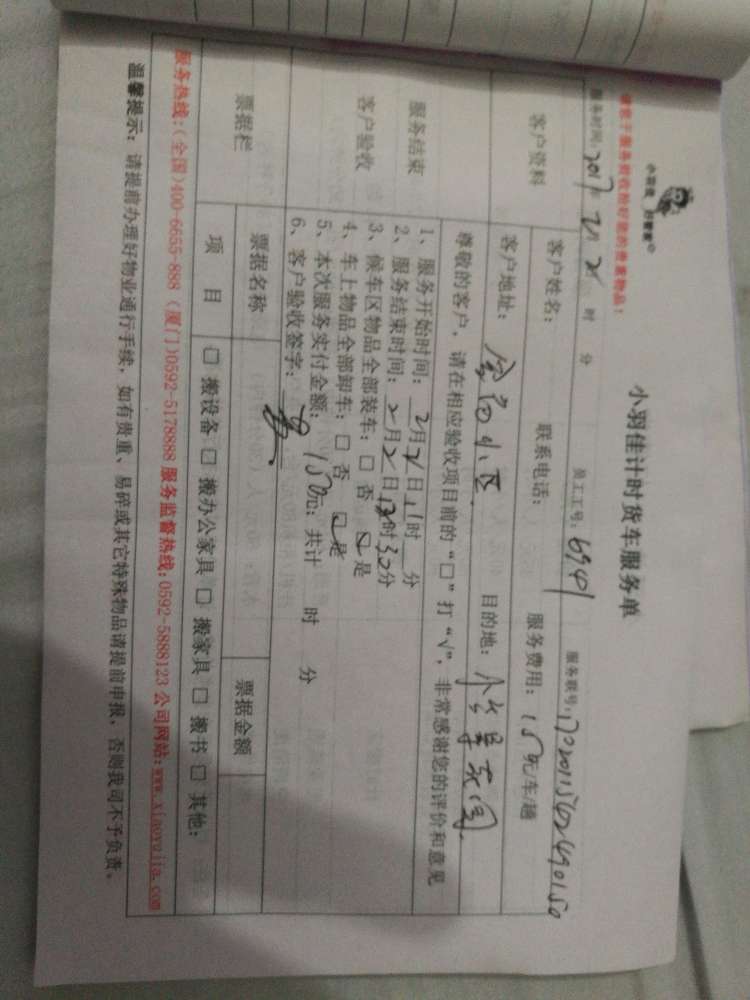 小羽佳 好管家
小羽佳计时货车服务单
服务时间：2017年2月21 时 分 员工工号：6941 服务联号：
客户资料
客户姓名： 联系电话： 服务费用：150元/车/趟
客户地址： 小区 目的地：
尊敬的客户，请在相应验收项目前的“□”打“√”，非常感谢您的评价和意见
服务结束
客户验收
1、服务开始时间：2月21日11时 分
2、服务结束时间：2月21日 时30分
3、候车区物品全部装车：□ 否 ☑ 是
4、车上物品全部卸车：□ 否 ☑ 是
5、本次服务实付金额：150元；共计 时 分
6、客户验收签字：
票据栏
票据名称 票据金额
项 目 □ 搬设备 □ 搬办公家具 □ 搬家具 □ 搬书 □ 其他：
服务热线：(全国)400-6655-888 (厦门)0592-5178888 服务监督热线：0592-5888123 公司网站：www.xiaoyujia.com
温馨提示：请提前办理好物业通行手续，如有贵重、易碎或其它特殊物品请提前申报，否则我司不予负责。